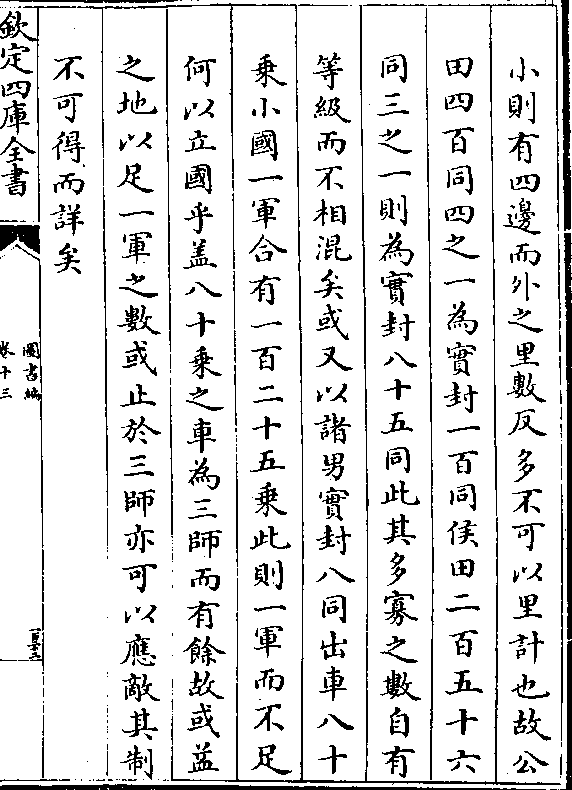 小則有四邊而外之里數反多不可以里計也故公
田四百同四之一為實封一百同侯田二百五十六
同三之一則為實封八十五同此其多寡之數自有
等級而不相混矣或又以諸男實封八同出車八十
乘小國一軍合有一百二十五乘此則一軍而不足
何以立國乎蓋八十乘之車為三師而有餘故或益
之地以足一軍之數或止於三師亦可以應敵其制
不可得而詳矣
欽定四庫全書
圖書編
卷十三